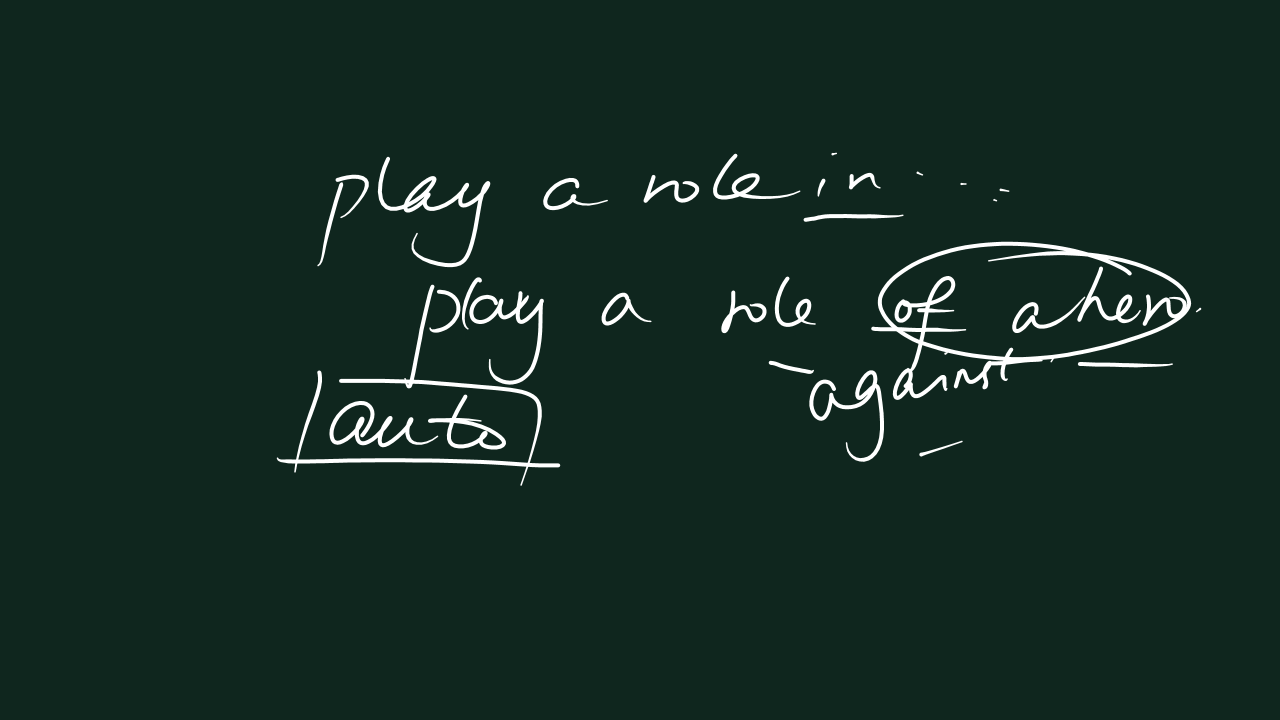 play a role in ....
play a role of a hero.
against
auto